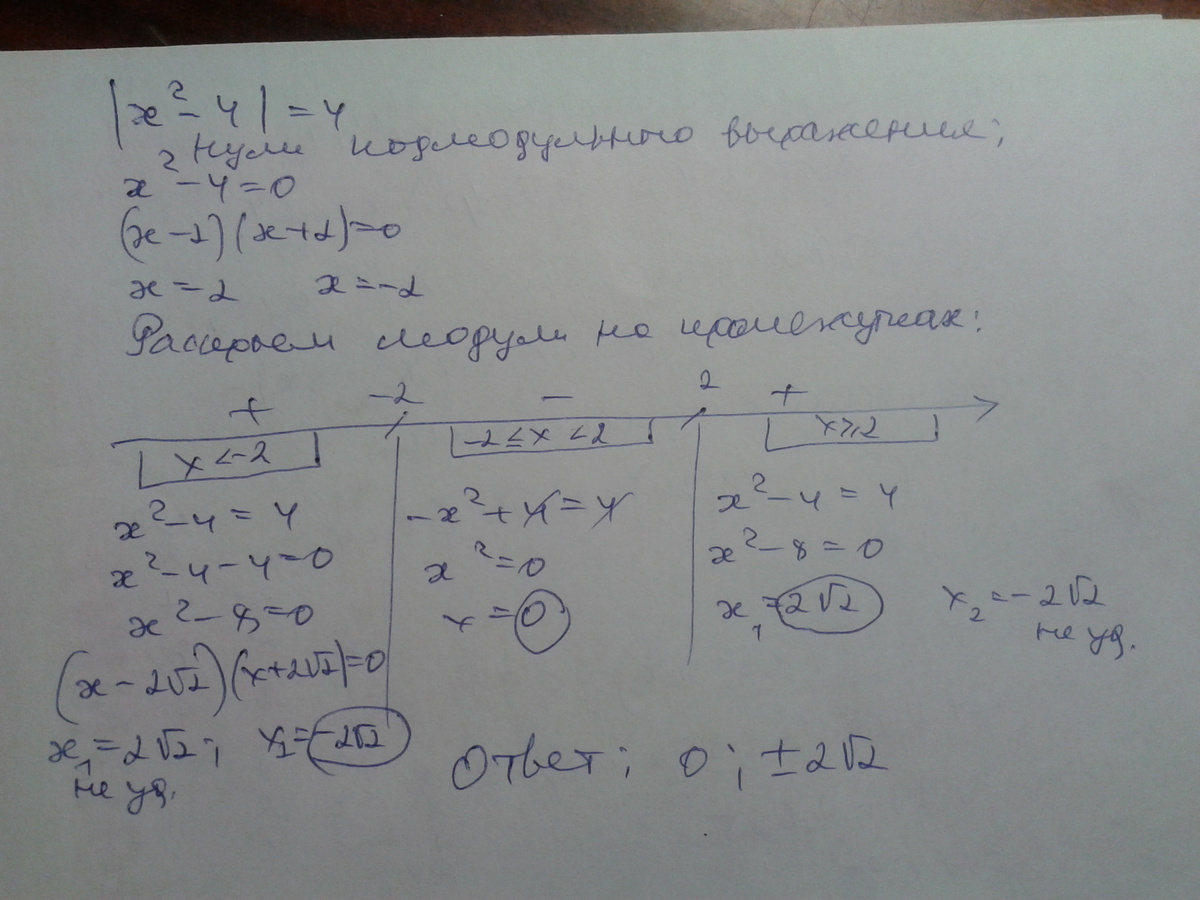 |x² - 4| = 4
Нули подмодульного выражения:
x² - 4 = 0
(x - 2)(x + 2) = 0
x = 2 x = -2
Раскроем модули на промежутках:
+ -2 - 2 +
x < -2 -2 ≤ x < 2 x ≥ 2
x² - 4 = 4
x² - 4 - 4 = 0
x² - 8 = 0
(x - 2√2)(x + 2√2) = 0
x₁ = 2√2; x₂ = -2√2
не уд.
-x² + 4 = 4
x² = 0
x = 0
x² - 4 = 4
x² - 8 = 0
x₁ = 2√2 x₂ = -2√2
не уд.
Ответ: 0; ±2√2